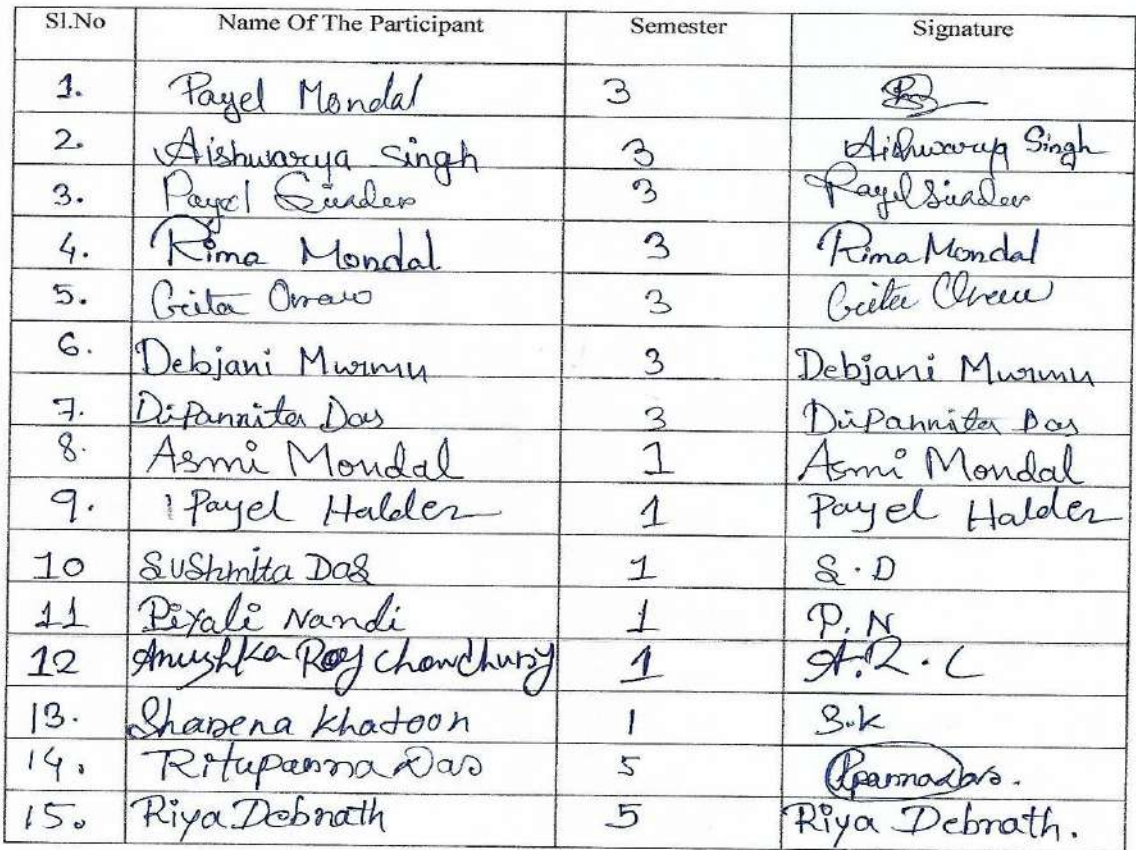 Sl.No Name Of The Participant Semester Signature
1. Payel Mondal 3
2. Aishwarya Singh 3 Aishwarya Singh
3. Payel 3 Payel
4. Rima Mondal 3 Rima Mondal
5. Geita 3 Geita
6. Debjani Murmu 3 Debjani Murmu
7. Dipannita Das 3 Dipannita Das
8. Asmi Mondal 1 Asmi Mondal
9. Payel Halder 1 Payel Halder
10 Sushmita Das 1 S.D
11 Piyali Nandi 1 P.N
12 Anushka Roy Chowdhury 1 A.R.C
13. Sharena Khatoon 1 S.k
14. Rituparna Das 5
15. Riya Debnath 5 Riya Debnath.